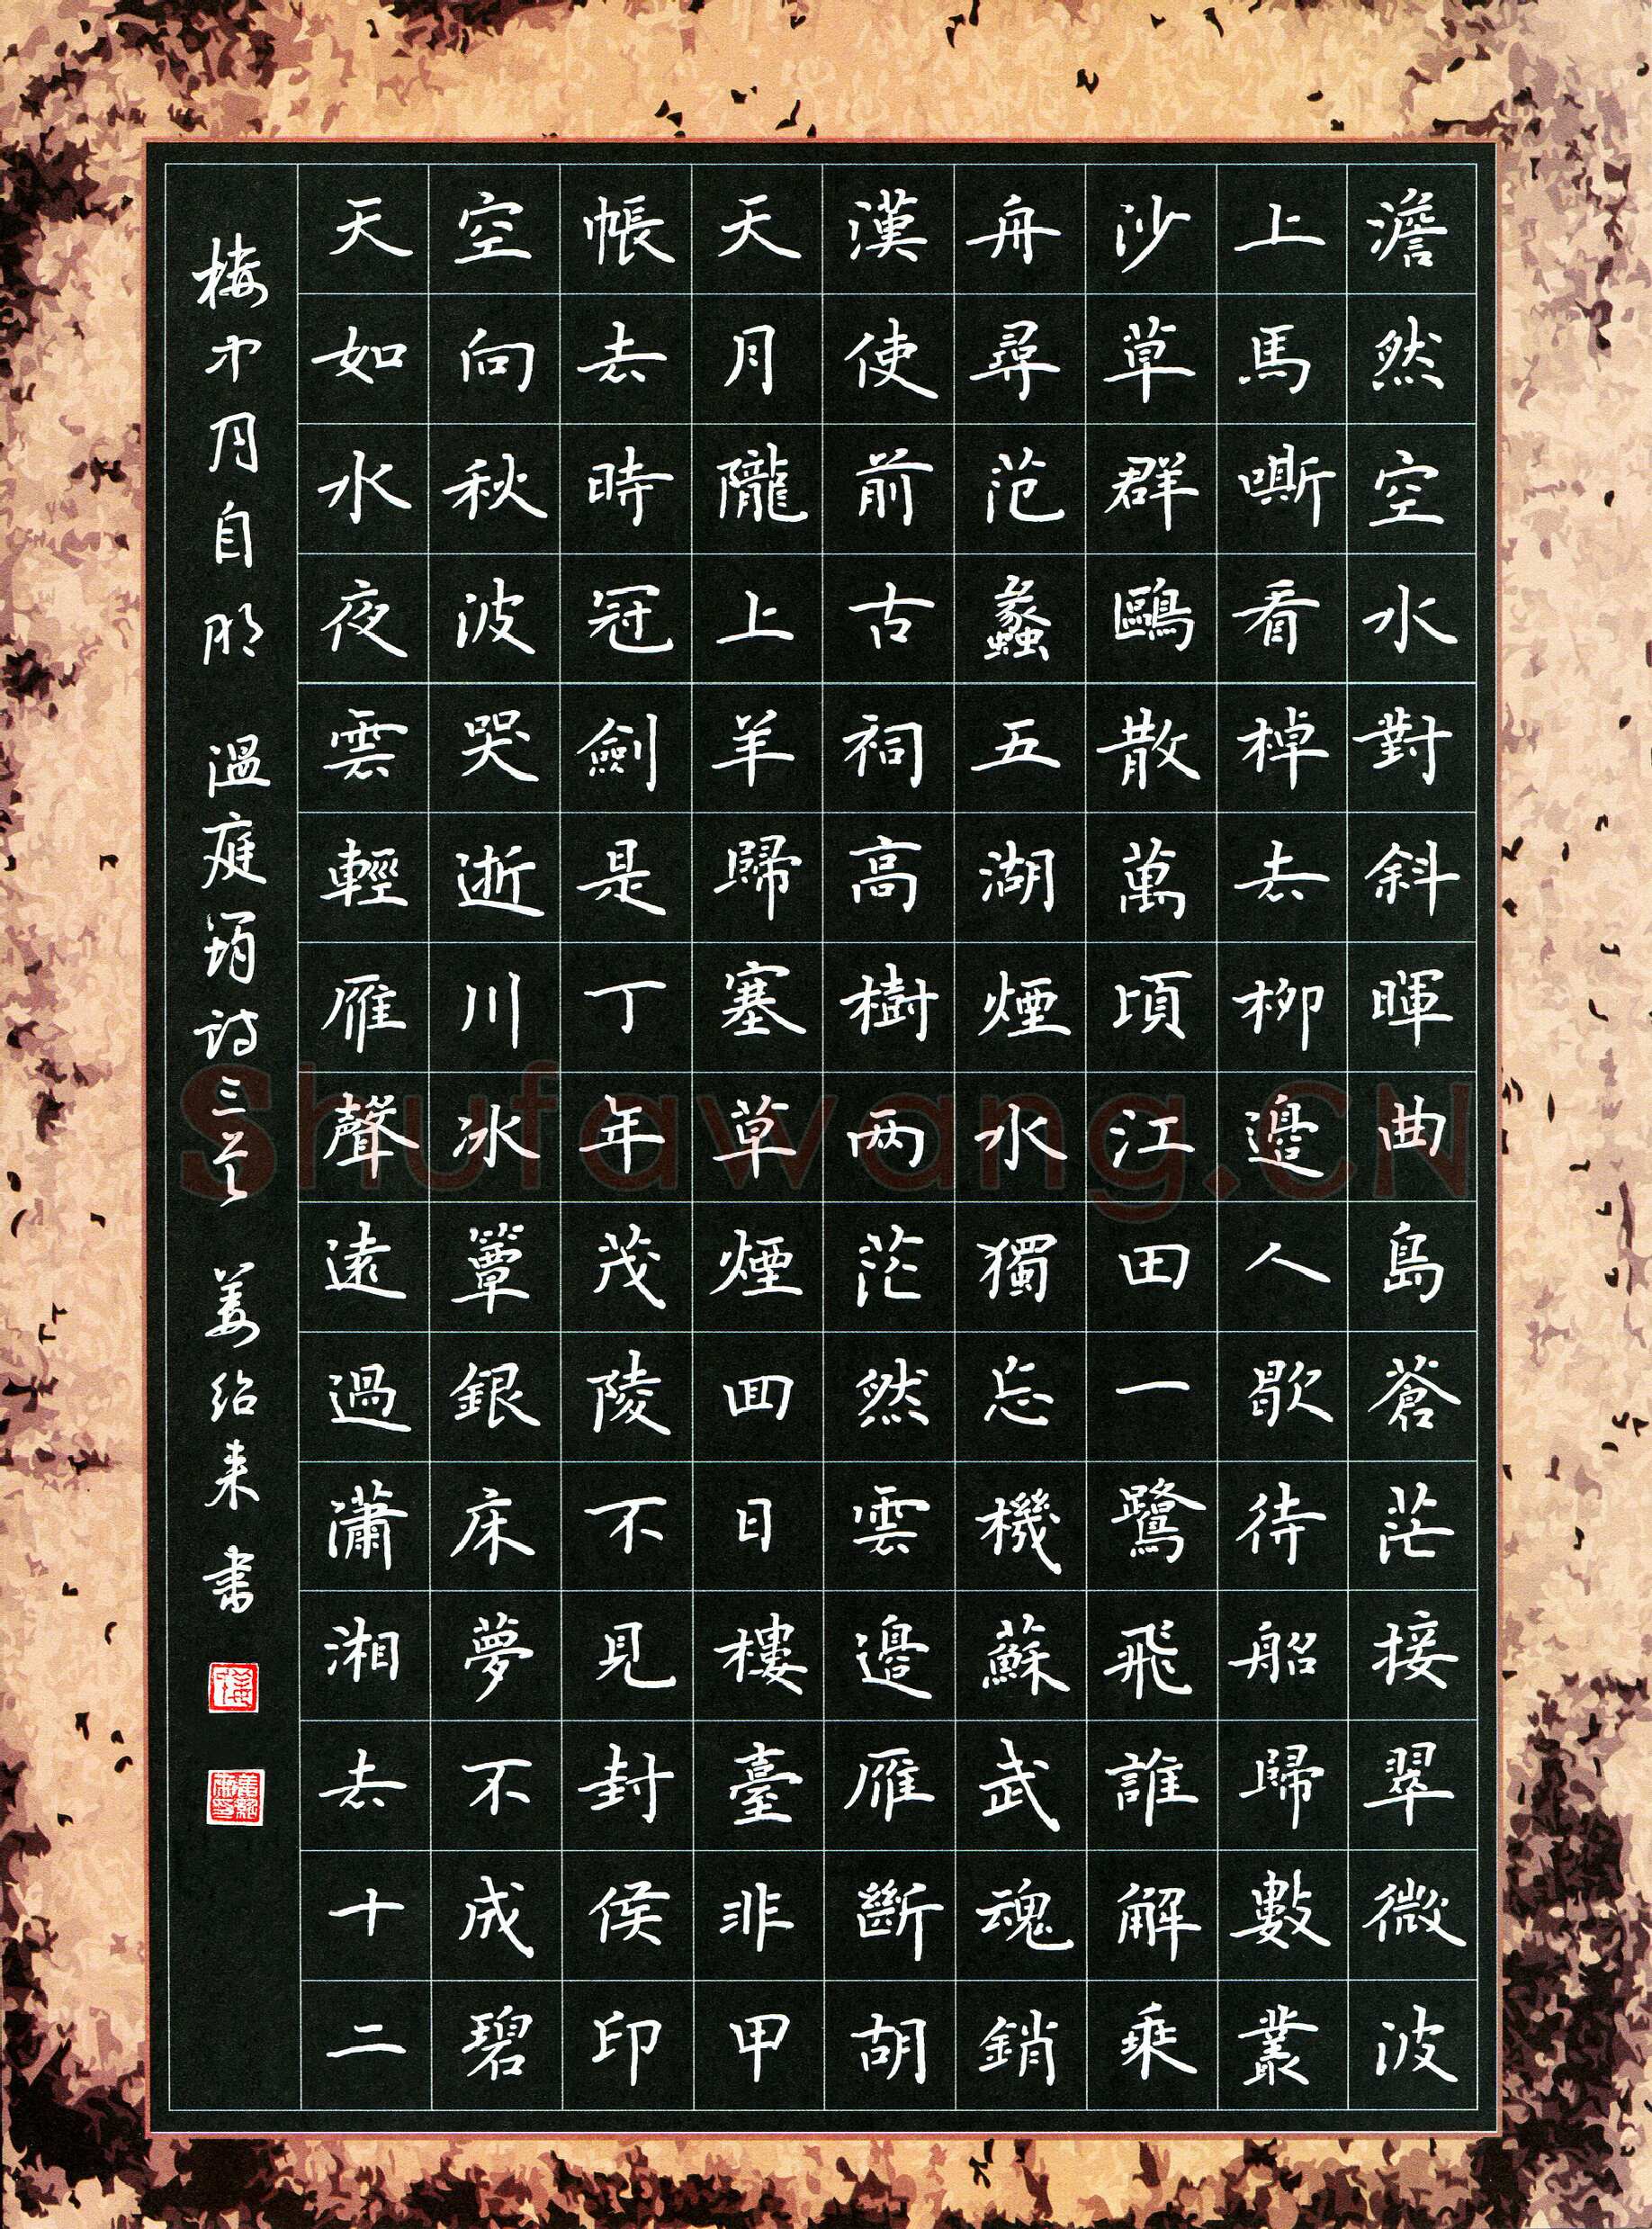 澹然空水對斜暉曲島蒼茫接翠微波
上馬嘶看棹去柳邊人歇待船歸數叢
沙草群鷗散萬頃江田一鷺飛誰解乘
舟尋范蠡五湖煙水獨忘機蘇武魂銷
漢使前古祠高樹兩茫然雲邊雁斷胡
天月隴上羊歸塞草煙回日樓臺非甲
帳去時冠劍是丁年茂陵不見封侯印
空向秋波哭逝川冰簟銀床夢不成碧
天如水夜雲輕雁聲遠過瀟湘去十二
樓中月自明 溫庭筠詩三首 姜紹來書
Shufawang.CN